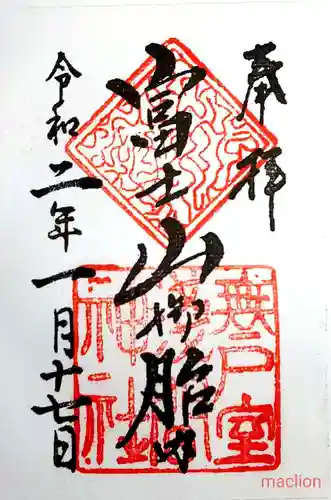 奉拝
富士山御胎内
無戸室
浅間
神社
令和二年一月十七日
maclion